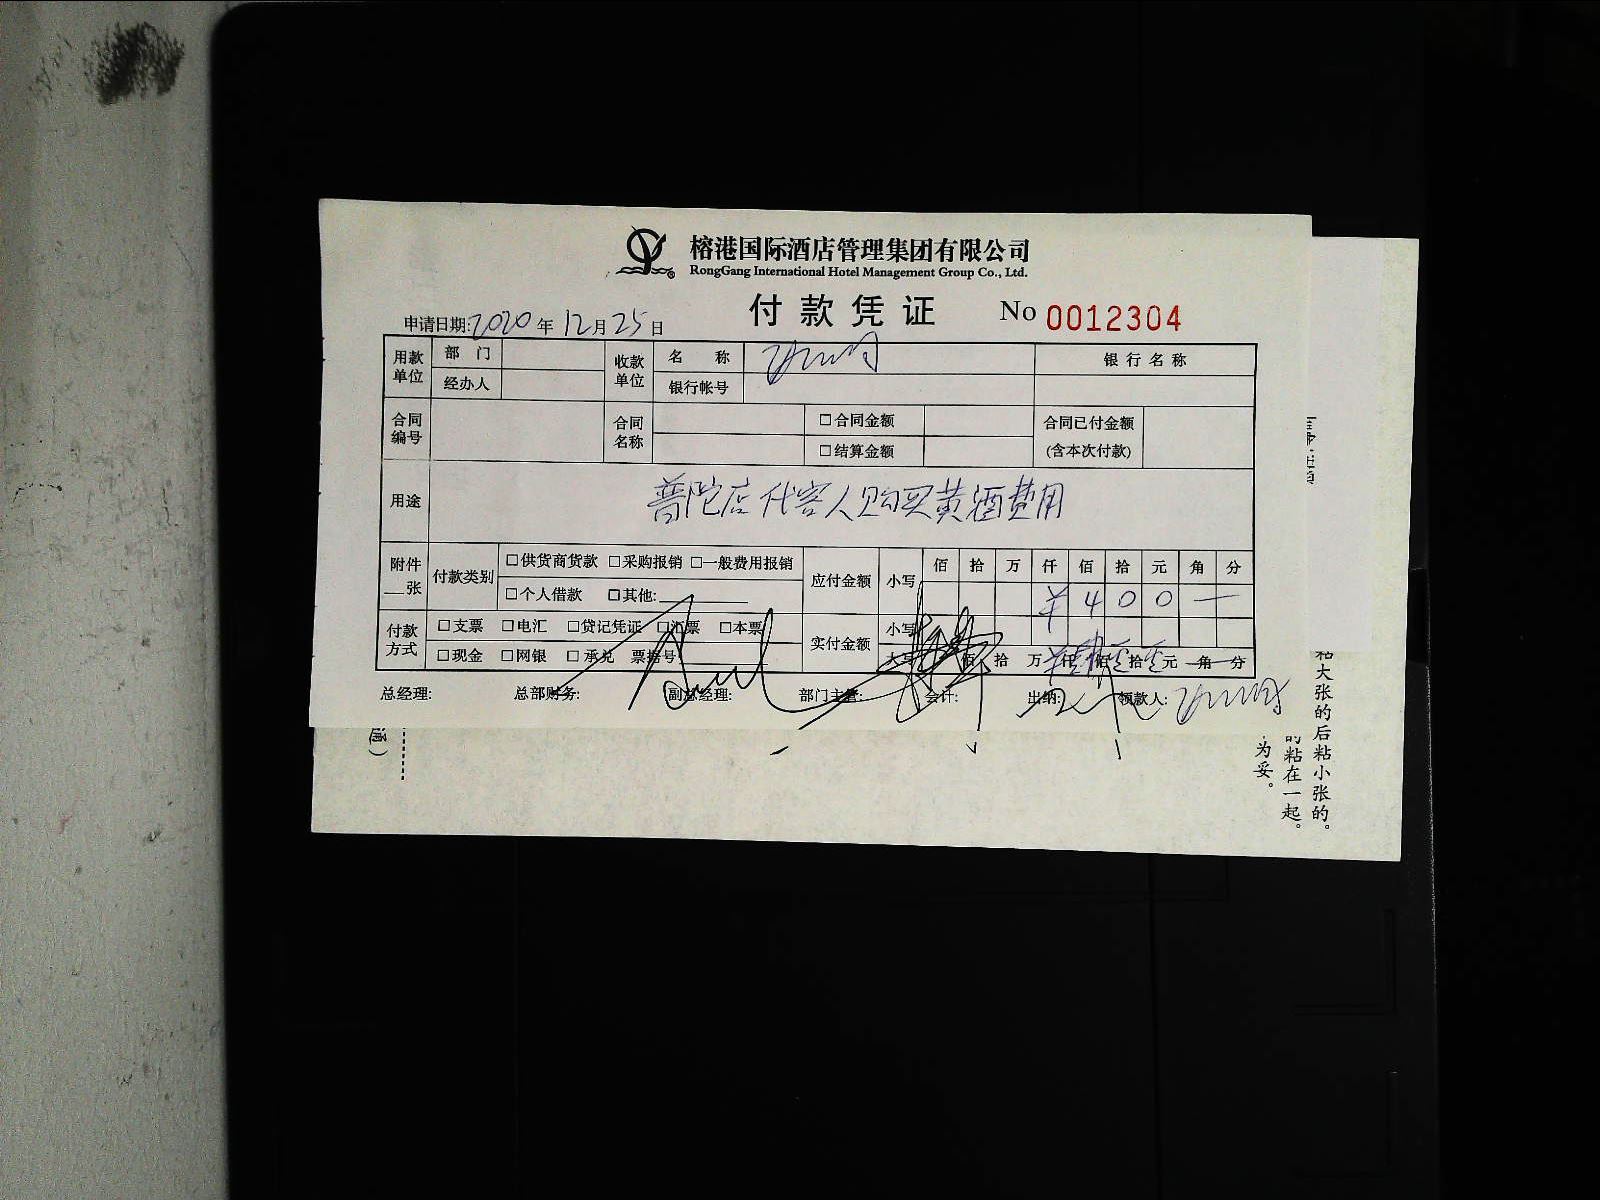 榕港国际酒店管理集团有限公司
RongGang International Hotel Management Group Co., Ltd.
付款凭证 No 0012304
申请日期: 2020 年 12 月 25 日
用款单位 部门 收款单位 名称 银行名称
经办人 银行帐号
合同编号 合同名称 □合同金额 合同已付金额
□结算金额 (含本次付款)
用途 普陀店代客人购买黄酒费用
附件 张 付款类别 □供货商货款 □采购报销 □一般费用报销 应付金额 小写 佰 拾 万 仟 佰 拾 元 角 分
□个人借款 □其他: ¥ 4 0 0 —
付款方式 □支票 □电汇 □贷记凭证 □汇票 □本票 实付金额 小写
□现金 □网银 □承兑 票据号 大写 佰 拾 万 仟 佰 零 拾 零 元 角 分
总经理: 总部财务: 副总经理: 部门主管: 会计: 出纳: 领款人:
粘大张的后粘小张的。
的粘在一起。
为妥。